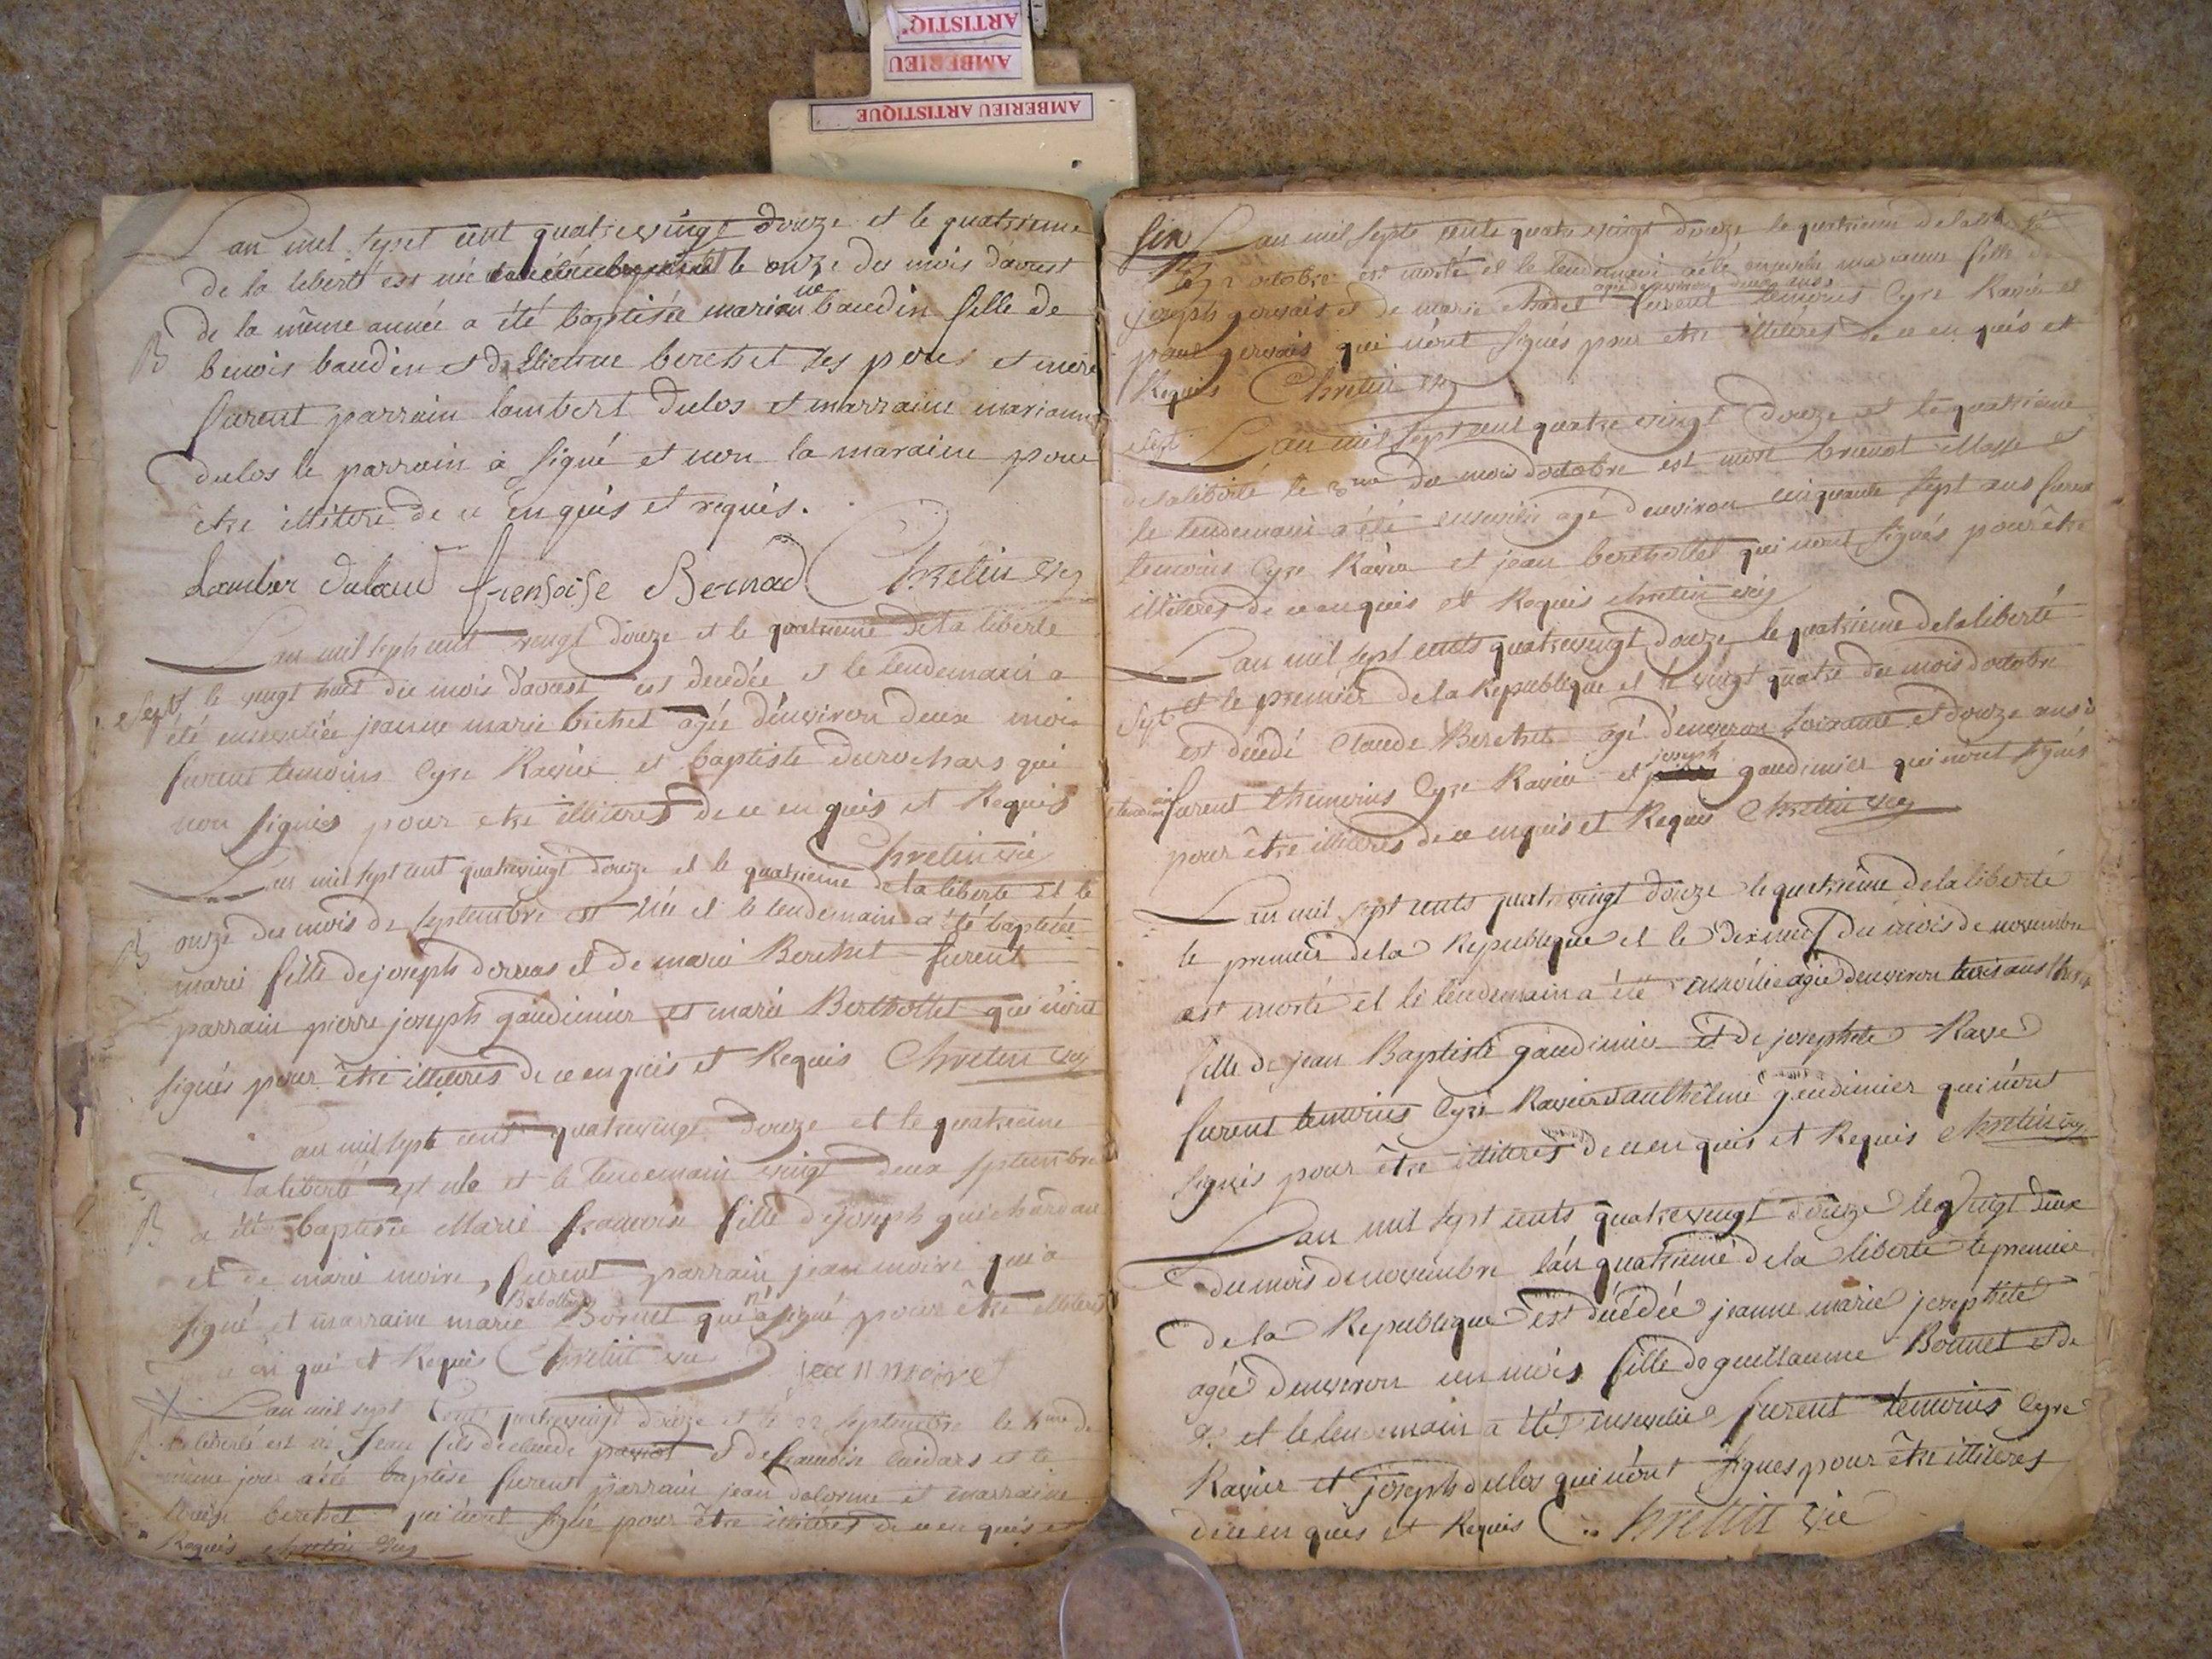 ARTISTIQ
AMBERIEU
AMBERIEU ARTISTIQUE
Lan mil sept cent quatre vingt douze et le quatrieme
de la liberté est née le onze du mois daoust
de la même année a été baptisée marianne baudin fille de
B
benois baudin et detienne berchet ses peres et mere
furent parrain lambert dulos et marraine marianne
dulos le parrain à signé et non la maraine pour
être illitere de ce enquis et requis.
Lamber dulaud fransoise Bernad Chretin vic
Lan mil seph cent vingt douze et le quatrieme de la liberté
sept le vingt huit du mois daoust est decedée et le lendemain a
été ensevelie jeanne marie bichet agée denviron deux mois
furent temoins Cyre Ravier et baptiste durochars qui
non signés pour etre illiteres de ce enquis et Requis
Chretin vic
Lan mil sept cent quatrevingt douze et le quatrieme de la liberté et le
B onze du mois de septembre est née et le lendemain a été baptisée
marie fille de joseph dervas et de marie Berchet furent
parrain pierre joseph gaudimier et marie Berthollet qui nont
signés pour être illiteres de ce enquis et Requis Chretin vic
Lan mil sept cent quatrevingt douze et le quatrieme
la liberté est née et le lendemain vingt deux septembre
B a été baptisée Marie francoise fille de joseph guichardan
et de marie moire, furent parrain jean moire qui a
signé et marraine marie Bonnet qui n'a signé pour être illitere
enqui et Requis Chretin vic jean moiret
Lan mil sept Cents quatrevingt douze et le 22 septembre le 4me de
la liberté est né Jean fils de claude paviot et de francoise Cuidars et le
même jour a été baptise furent parrain jean dalorme et marraine
berchet qui nont signé pour être illiteres de ce enquis et
Requis chretin vic
Lan mil septs cents quatre vingt douze le quatrieme de la
2 octobre est morte et le lendemain a été fille de
agée denviron deux ans
joseph gervais et de marie furent temoins Cyre Ravier et
paul gervais qui nont signés pour etre illitéres de ce enquis et
Requis Chretin vic
Lan mil sept cent quatre vingt douze et le quatrieme
de la liberté le 3me du mois doctobre est mort benoit et
le lendemain a été enseveli agé denviron cinquante sept ans furent
temoins Cyre Ravier et jean berthollet qui nont signés pour être
illiteres de ce enquis et Requis chretin vic
Lan mil sept cents quatrevingt douze le quatrieme de la liberté
sept et le premier de la Republique et le vingt quatre du mois doctobre
est décédé Claude Berchet agé denviron soixante et douze ans
joseph
furent themoins Cyre Ravier et gaudimier qui nont signés
pour être illiteres de ce enquis et Requis Chretin vic
Lan mil sept cents quatrevingt douze le quatrième de la liberté
le premier de la Republique et le dixneuf du mois de novembre
est morte et le lendemain a été ensevelie agée denviron trois ans
fille de jean Baptiste gaudimier et de josephete Rave
furent temoins Cyre Ravier et anthelme gaudimier qui nont
signés pour être illiteres de ce enquis et Requis chretin vic
Lan mil sept cents quatrevingt douze le vingt deux
du mois de novembre lan quatrieme de la liberté le premier
de la Republique est décédée jeanne marie josephete
agée denviron un mois fille de guillaume Bonnet et de
et le lendemain a été ensevelie furent temoins Cyre
Ravier et joseph dulos qui nont signes pour être illiteres
de ce enquis et Requis Chretin vic